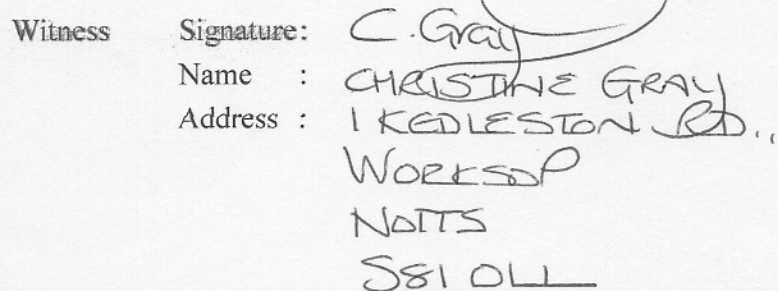 Witness Signature: C. Gray
Name : CHRISTINE GRAY
Address : 1 KEDLESTON RD.,
WORKSOP
NOTTS
S81 0LL